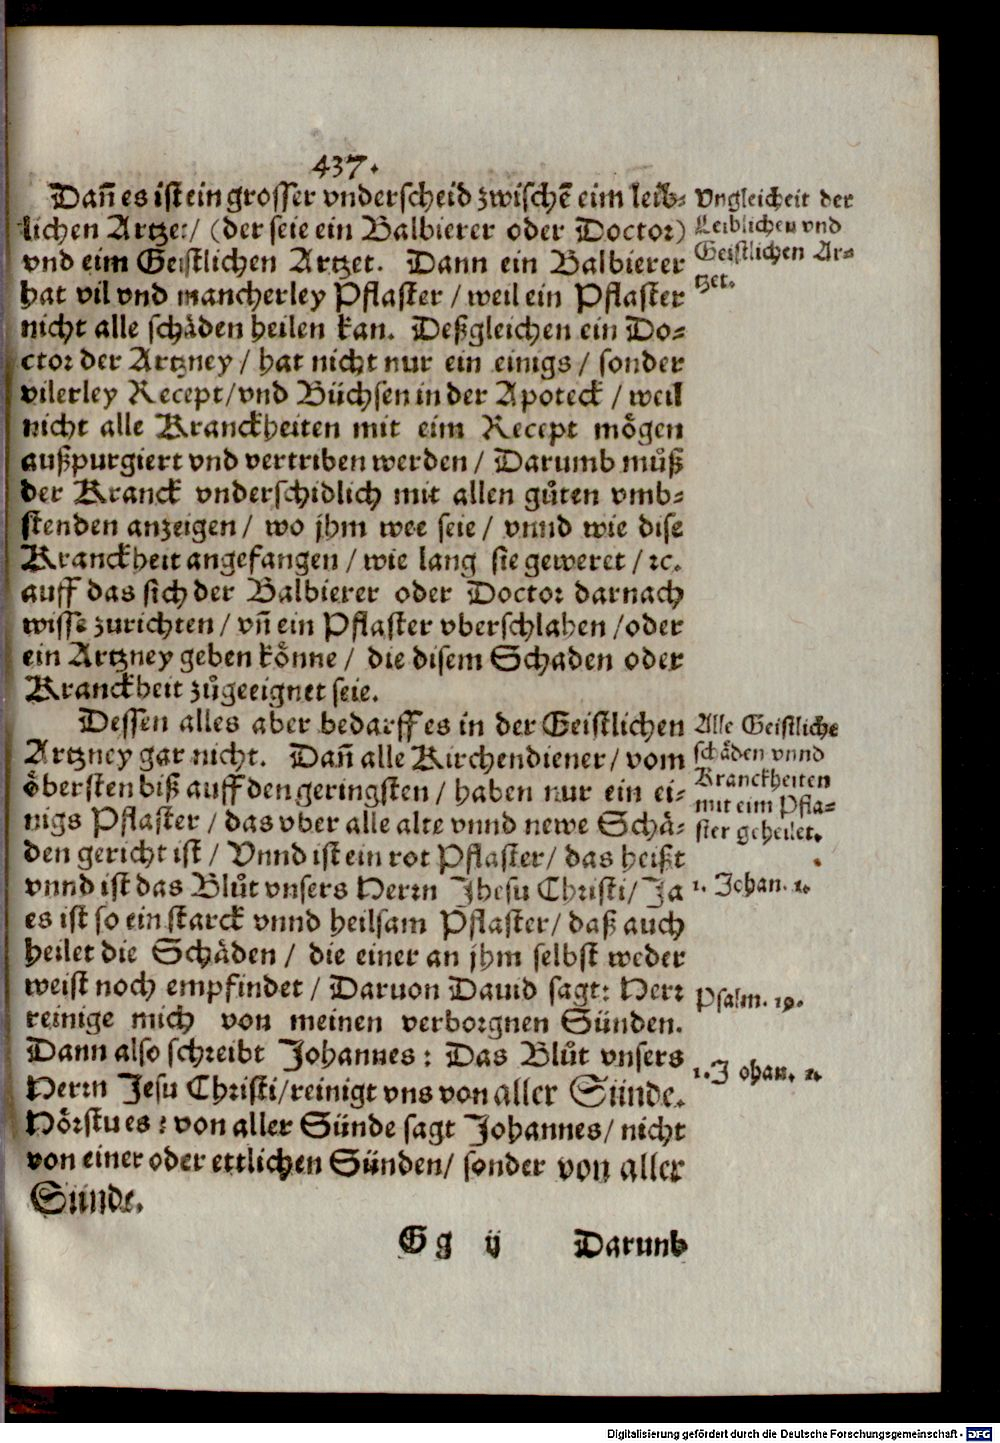 437.
Dañ es ist ein grosser vnderscheid zwischẽ eim leib-
lichen Artzet/ (der seie ein Balbierer oder Doctor)
vnd eim Geistlichen Artzet. Dann ein Balbierer
hat vil vnd mancherley Pflaster / weil ein Pflaster
nicht alle schäden heilen kan. Deßgleichen ein Do-
ctor der Artzney / hat nicht nur ein einigs / sonder
vilerley Recept/ vnd Büchsen in der Apoteck / weil
nicht alle Kranckheiten mit eim Recept mögen
außpurgiert vnd vertriben werden / Darumb můß
der Kranck vnderschidlich mit allen gůten vmb-
stenden anzeigen / wo jhm wee seie / vnnd wie dise
Kranckheit angefangen / wie lang sie geweret / ꝛc.
auff das sich der Balbierer oder Doctor darnach
wisse zurichten / vñ ein Pflaster vberschlahen /oder
ein Artzney geben könne / die disem Schaden oder
Kranckheit zůgeeignet seie.
Dessen alles aber bedarff es in der Geistlichen
Artzney gar nicht. Dañ alle Kirchendiener / vom
öbersten biß auff den geringsten / haben nur ein ei-
nigs Pflaster / das vber alle alte vnnd newe Schä-
den gericht ist / Vnnd ist ein rot Pflaster/ das heißt
vnnd ist das Blůt vnsers Herrn Jhesu Christi/ Ja
es ist so ein starck vnnd heilsam Pflaster/ daß auch
heilet die Schäden / die einer an jhm selbst weder
weist noch empfindet / Daruon Dauid sagt: Herr
reinige mich von meinen verborgnen Sünden.
Dann also schreibt Johannes: Das Blůt vnsers
Herrn Jesu Christi/reinigt vns von aller Sünde.
Hörstu es: von aller Sünde sagt Johannes/ nicht
von einer oder ettlichen Sünden/ sonder von aller
Sünde.
Gg ij Darumb
Vngleicheit der
Leiblichen vnd
Geistlichen Ar-
tzet.
Alle Geistliche
schäden vnnd
Kranckheiten
mit eim Pfla-
ster geheilet.
1. Johan. 1.
Psalm. 19.
1. Johan. 1.
Digitalisierung gefördert durch die Deutsche Forschungsgemeinschaft - DFG